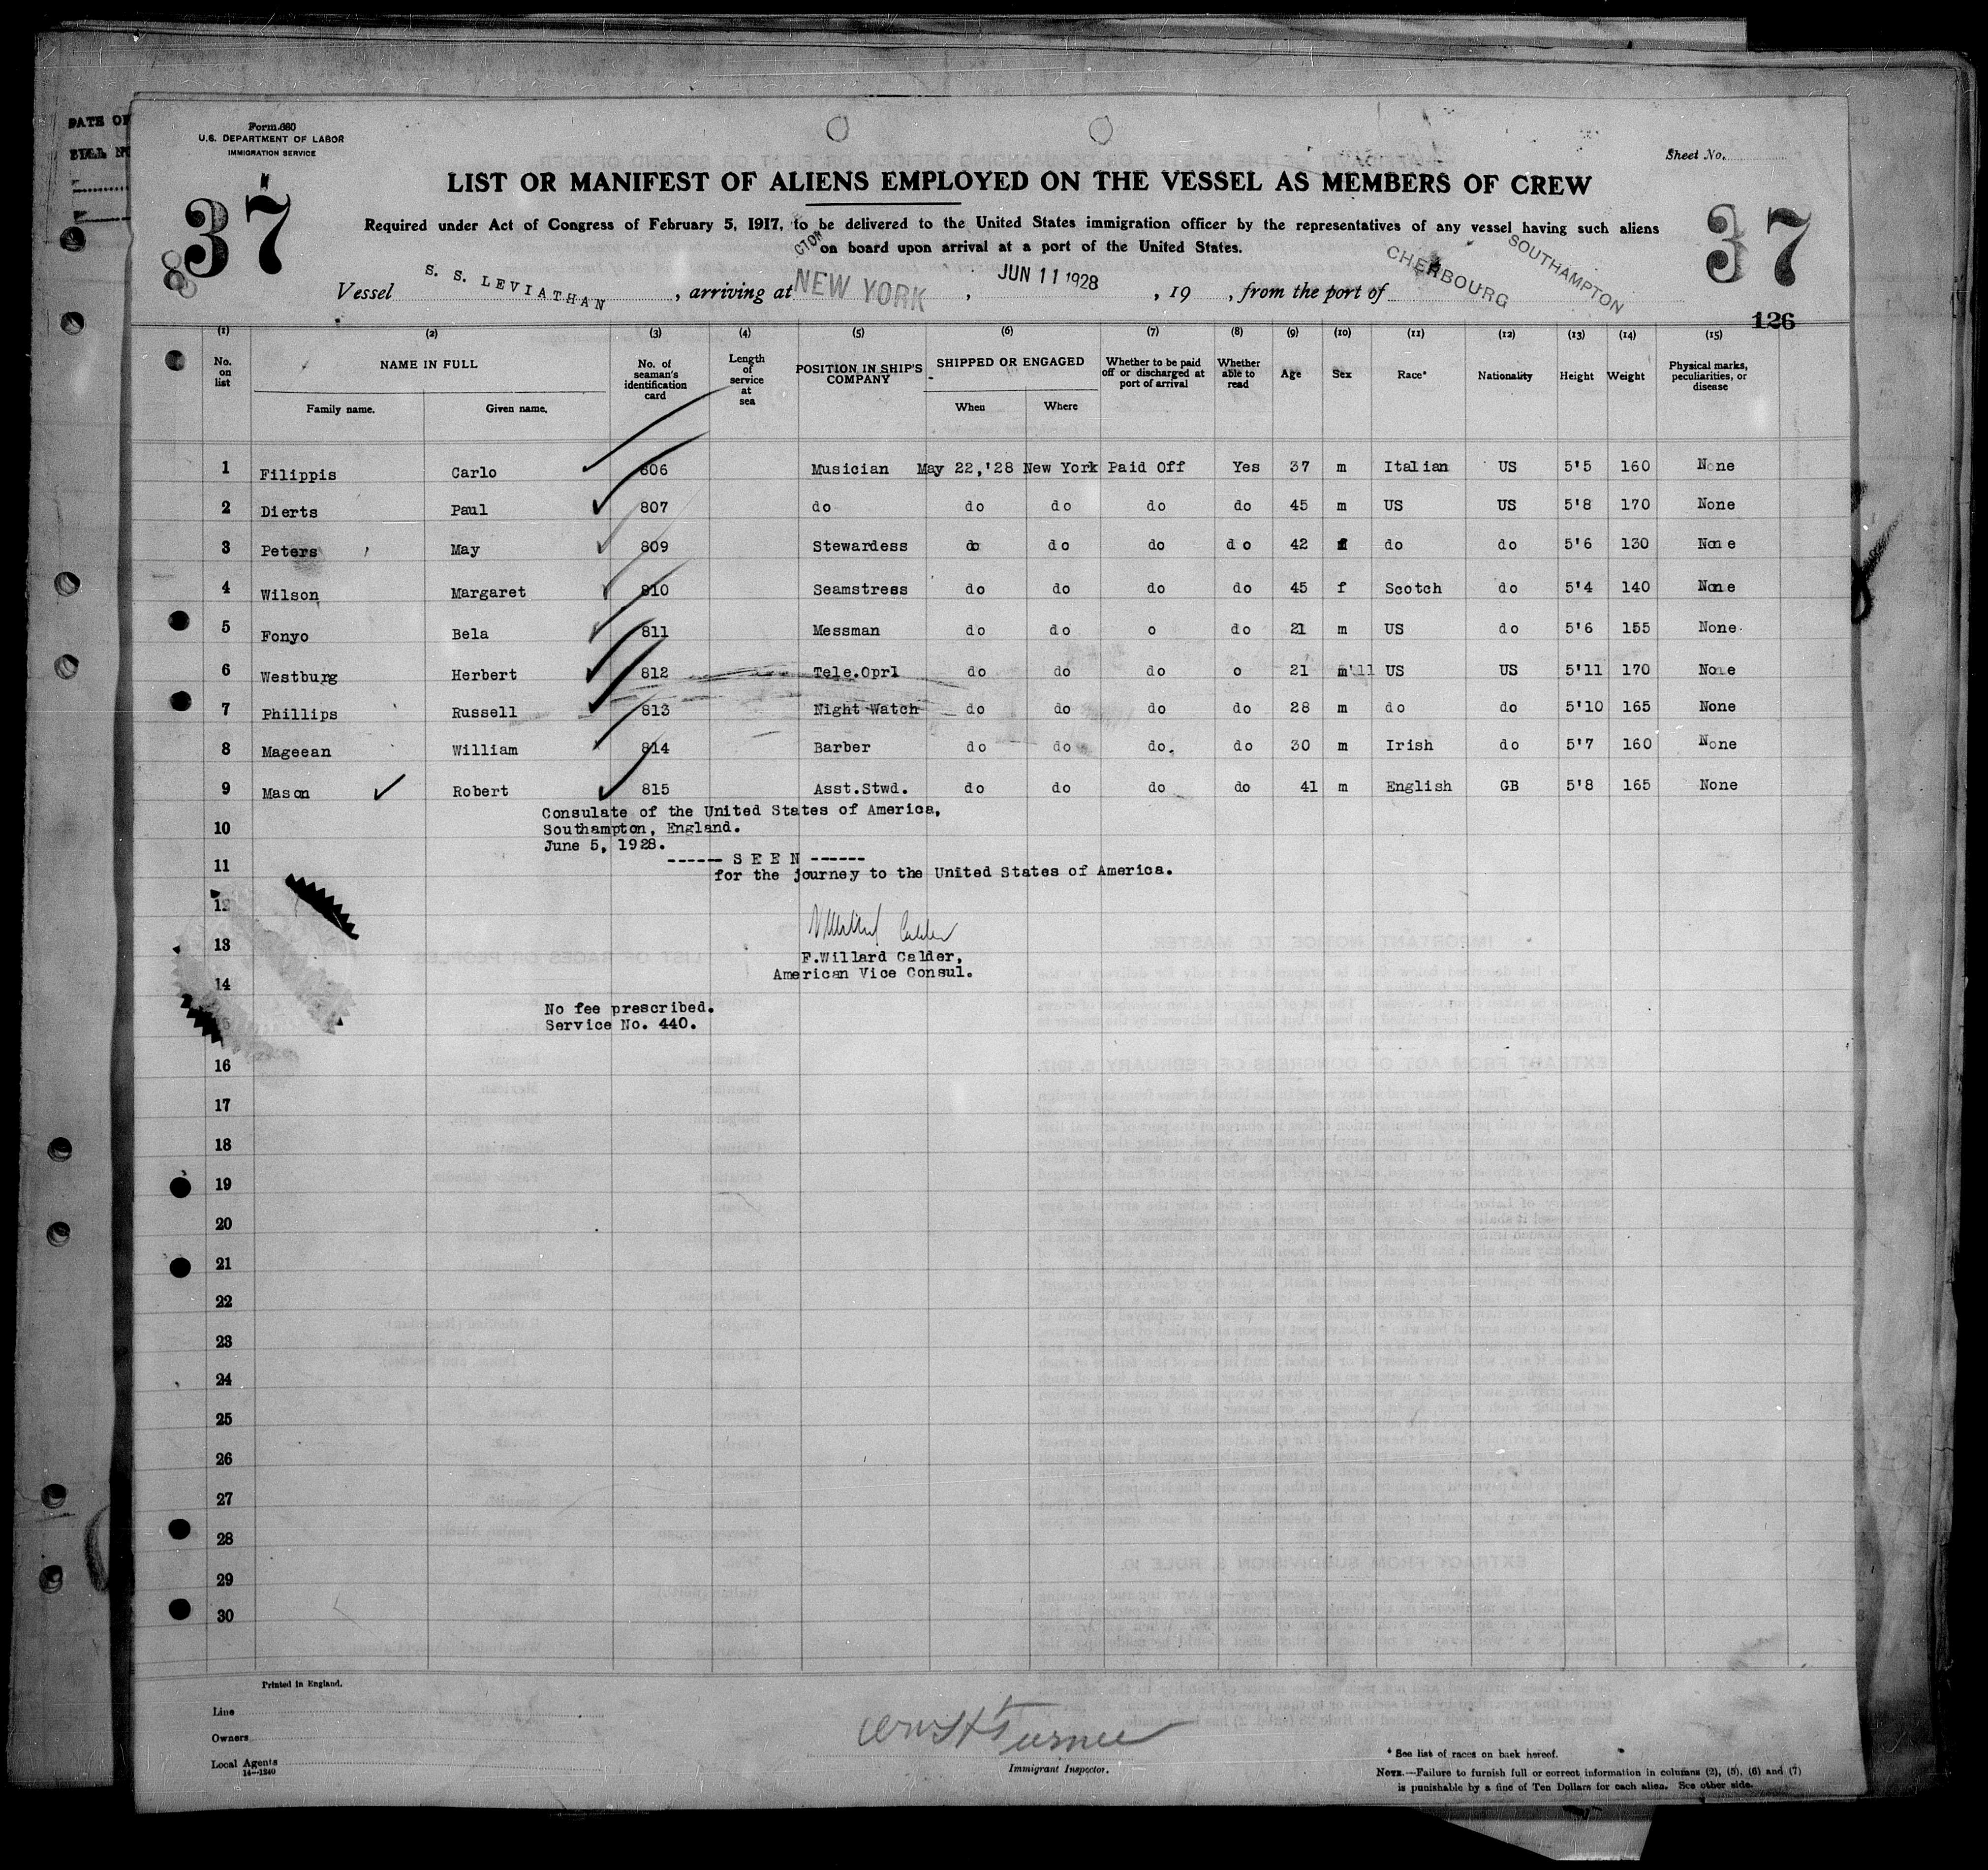 DATE OF
BILL N
Form 680
U.S. DEPARTMENT OF LABOR
IMMIGRATION SERVICE
Sheet No.
37
37
LIST OR MANIFEST OF ALIENS EMPLOYED ON THE VESSEL AS MEMBERS OF CREW
Required under Act of Congress of February 5, 1917, to be delivered to the United States immigration officer by the representatives of any vessel having such aliens
on board upon arrival at a port of the United States.
Vessel S. S. LEVIATHAN, arriving at NEW YORK, JUN 11 1928, 19 , from the port of CHERBOURG SOUTHAMPTON
126
(1) (2) (3) (4) (5) (6) (7) (8) (9) (10) (11) (12) (13) (14) (15)
No. on list NAME IN FULL Family name. Given name. No. of seaman's identification card Length of service at sea POSITION IN SHIP'S COMPANY SHIPPED OR ENGAGED When Where Whether to be paid off or discharged at port of arrival Whether able to read Age Sex Race* Nationality Height Weight Physical marks, peculiarities, or disease
1 Filippis Carlo 806 Musician May 22,'28 New York Paid Off Yes 37 m Italian US 5'5 160 None
2 Dierts Paul 807 do do do do do 45 m US US 5'8 170 None
3 Peters May 809 Stewardess do do do do 42 f do do 5'6 130 None
4 Wilson Margaret 810 Seamstress do do do do 45 f Scotch do 5'4 140 None
5 Fonyo Bela 811 Messman do do o do 21 m US do 5'6 155 None
6 Westburg Herbert 812 Tele.Oprl do do do o 21 m'11 US US 5'11 170 None
7 Phillips Russell 813 Night Watch do do do do 28 m do do 5'10 165 None
8 Mageean William 814 Barber do do do. do 30 m Irish do 5'7 160 None
9 Mason Robert 815 Asst.Stwd. do do do do 41 m English GB 5'8 165 None
Consulate of the United States of America,
10 Southampton, England.
June 5, 1928.
------ S E E N ------
11 for the journey to the United States of America.
12
13
F.Willard Calder,
American Vice Consul.
14
No fee prescribed.
Service No. 440.
16
17
18
19
20
21
22
23
24
25
26
27
28
29
30
Printed in England.
Line
Owners
Local Agents
14—1240
Immigrant Inspector.
* See list of races on back hereof.
NOTE.—Failure to furnish full or correct information in columns (2), (5), (6) and (7)
is punishable by a fine of Ten Dollars for each alien. See other side.